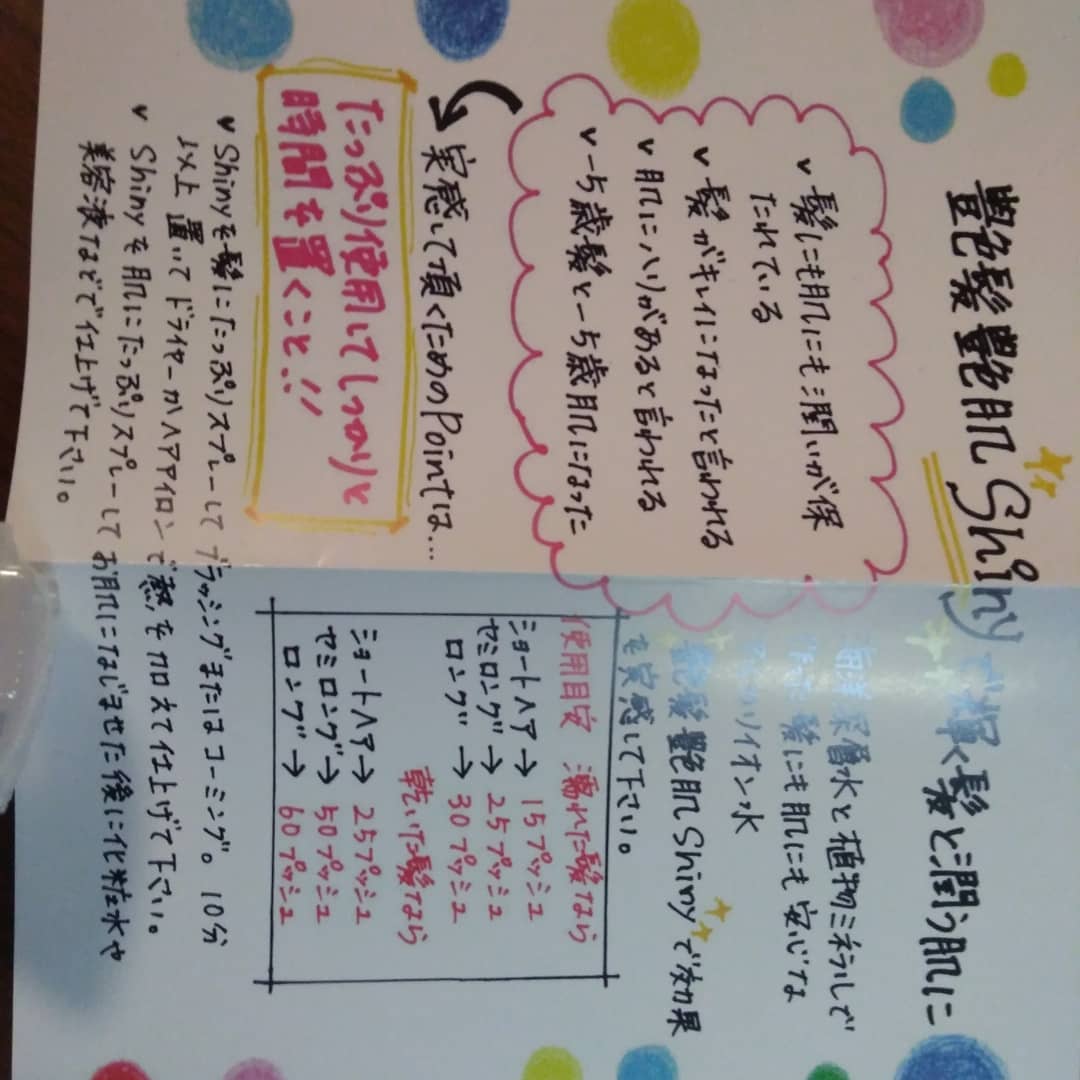 艶髪艶肌Shinyで輝く髪と潤う肌に
✓髪にも肌にも潤いが保
たれている
✓髪がキレイになったと言われる
✓肌にハリがあると言われる
✓−5歳髪と−5歳肌になった
海洋深層水と植物ミネラルで
髪にも肌にも安心な
イオン水
艶髪艶肌Shinyで効果
を実感して下さい。
実感して頂くためのPointは…
たっぷり使用してしっかりと
時間を置くこと!!
使用目安 濡れた髪なら
ショートヘア→15プッシュ
セミロング→25プッシュ
ロング→30プッシュ
乾いた髪なら
ショートヘア→25プッシュ
セミロング→50プッシュ
ロング→60プッシュ
✓Shinyを髪にたっぷりスプレーしてブラッシングまたはコーミング。10分
以上置いてドライヤーかヘアアイロンで熱を加えて仕上げて下さい。
✓Shinyを肌にたっぷりスプレーしてお肌になじませた後に化粧水や
美容液などで仕上げて下さい。